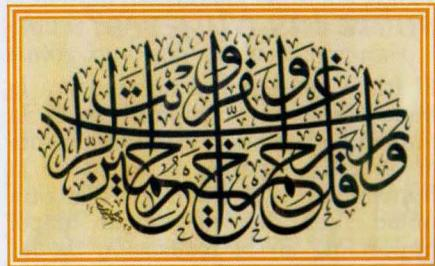 وقل رب اغفر وارحم وانت خير الراحمين